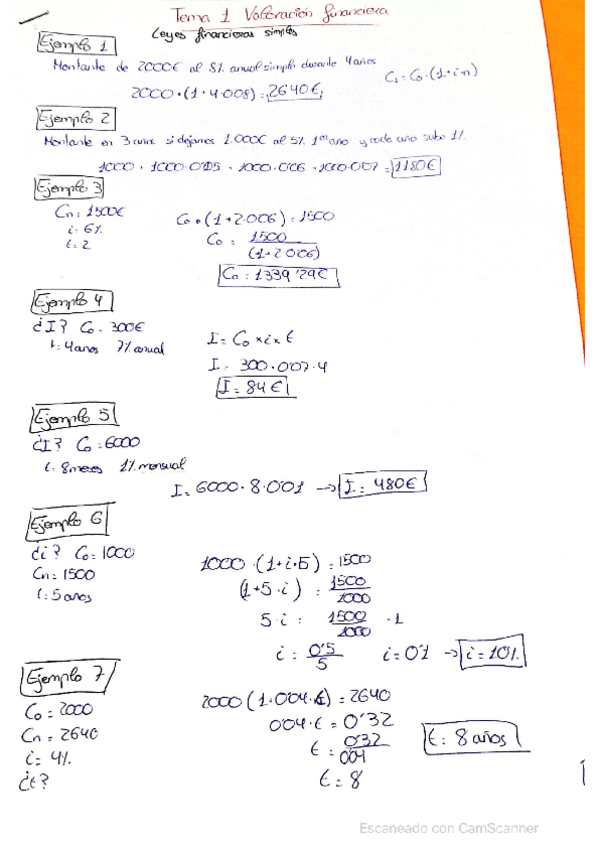 Tema 1 Valoración financiera
Leyes financieras simples
Ejemplo 1
Montante de 2000€ al 8% anual simple durante 4 años
C₁ = C₀ · (1+in)
2000 · (1+4·0'08) = 2640€
Ejemplo 2
Montante en 3 años si dejamos 1.000€ al 5% 1er año y cada año sube 1%.
1000 + 1000·0'05 + 1000·0'06 + 1000·0'07 = 1180€
Ejemplo 3
Cn = 1500€
i = 6%
t = 2
C₀ · (1+2·0'06) = 1500
C₀ = 1500
(1+2·0'06)
C₀ = 1339'29€
Ejemplo 4
¿I? C₀ = 300€
t = 4 años 7% anual
I = C₀ × i × t
I = 300 · 0'07 · 4
I = 84€
Ejemplo 5
¿I? C₀ = 6000
t = 8 meses 1% mensual
I = 6000 · 8 · 0'01 → I = 480€
Ejemplo 6
¿i? C₀ = 1000
Cn = 1500
t = 5 años
1000 · (1+i·5) = 1500
(1+5·i) = 1500
1000
5·i = 1500 - 1
1000
i = 0'5 i = 0'1 → i = 10%
5
Ejemplo 7
C₀ = 2000
Cn = 2640
i = 4%
¿t?
2000 (1+0'04·t) = 2640
0'04·t = 0'32
t = 0'32
0'04
t = 8
t = 8 años
Escaneado con CamScanner